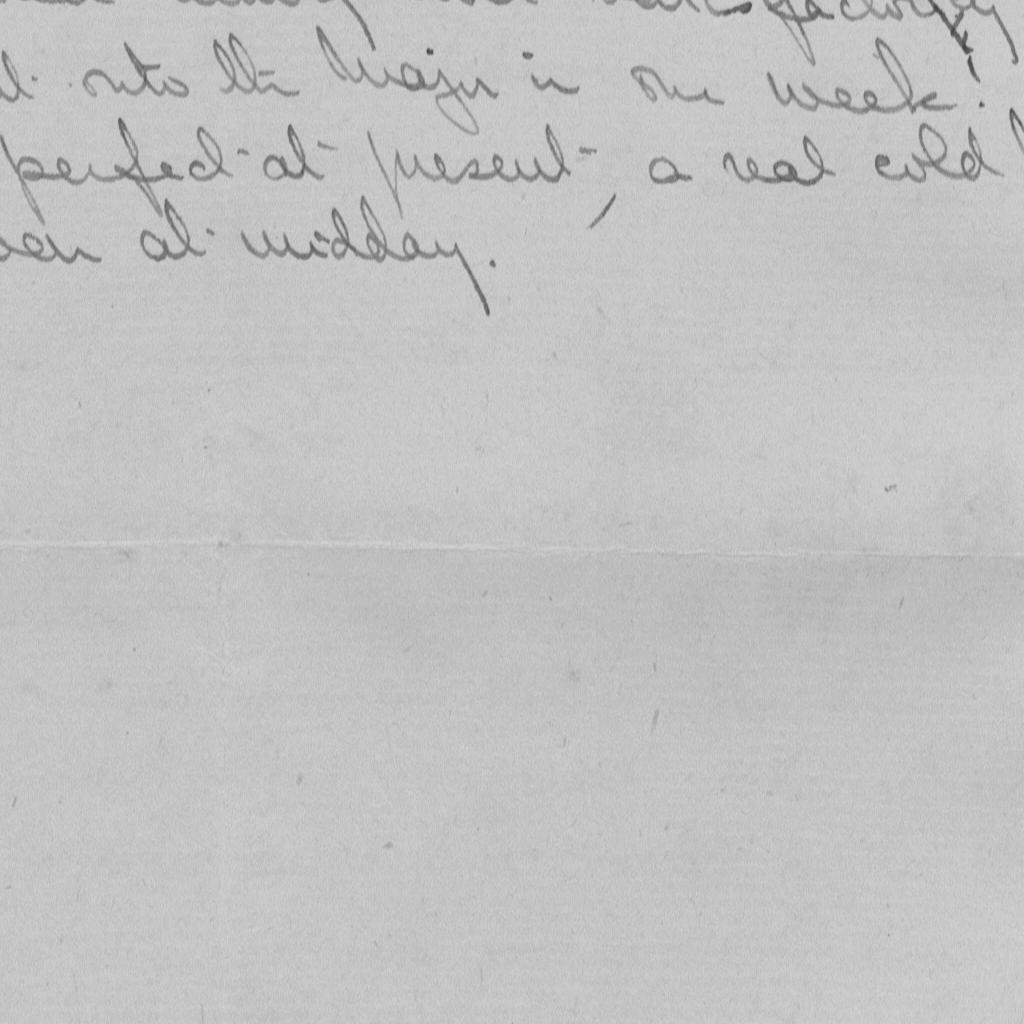 satisfactorily
onto the Major in one week!
perfect at present, a real cold
at midday.